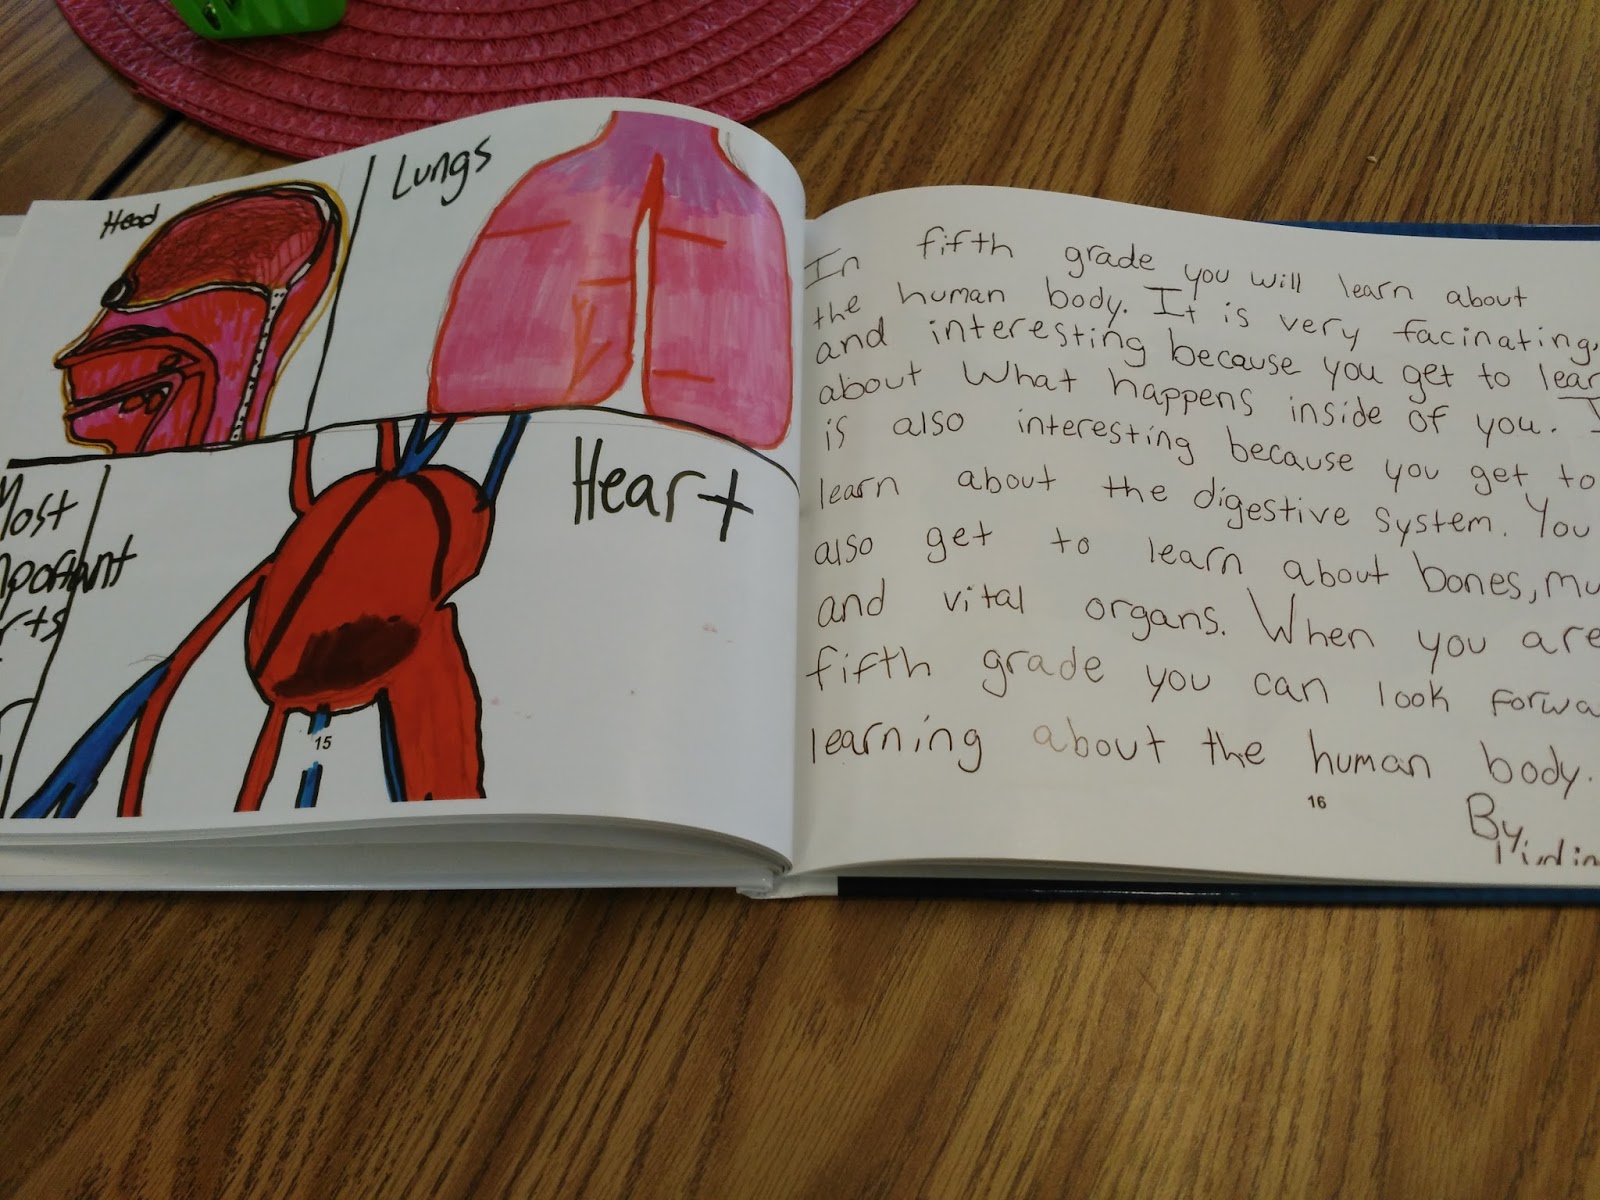 Head
Lungs
Most
Heart
15
In fifth grade you will learn about
the human body. It is very facinating,
and interesting because you get to
about what happens inside of you.
is also interesting because you get to
learn about the digestive system. You
also get to learn about bones,
and vital organs. When you are
fifth grade you can look
learning about the human body.
16
By,